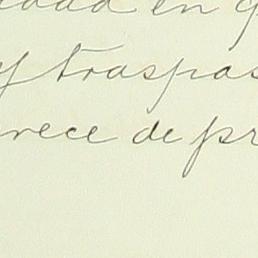 en
y traspas
rece de pr